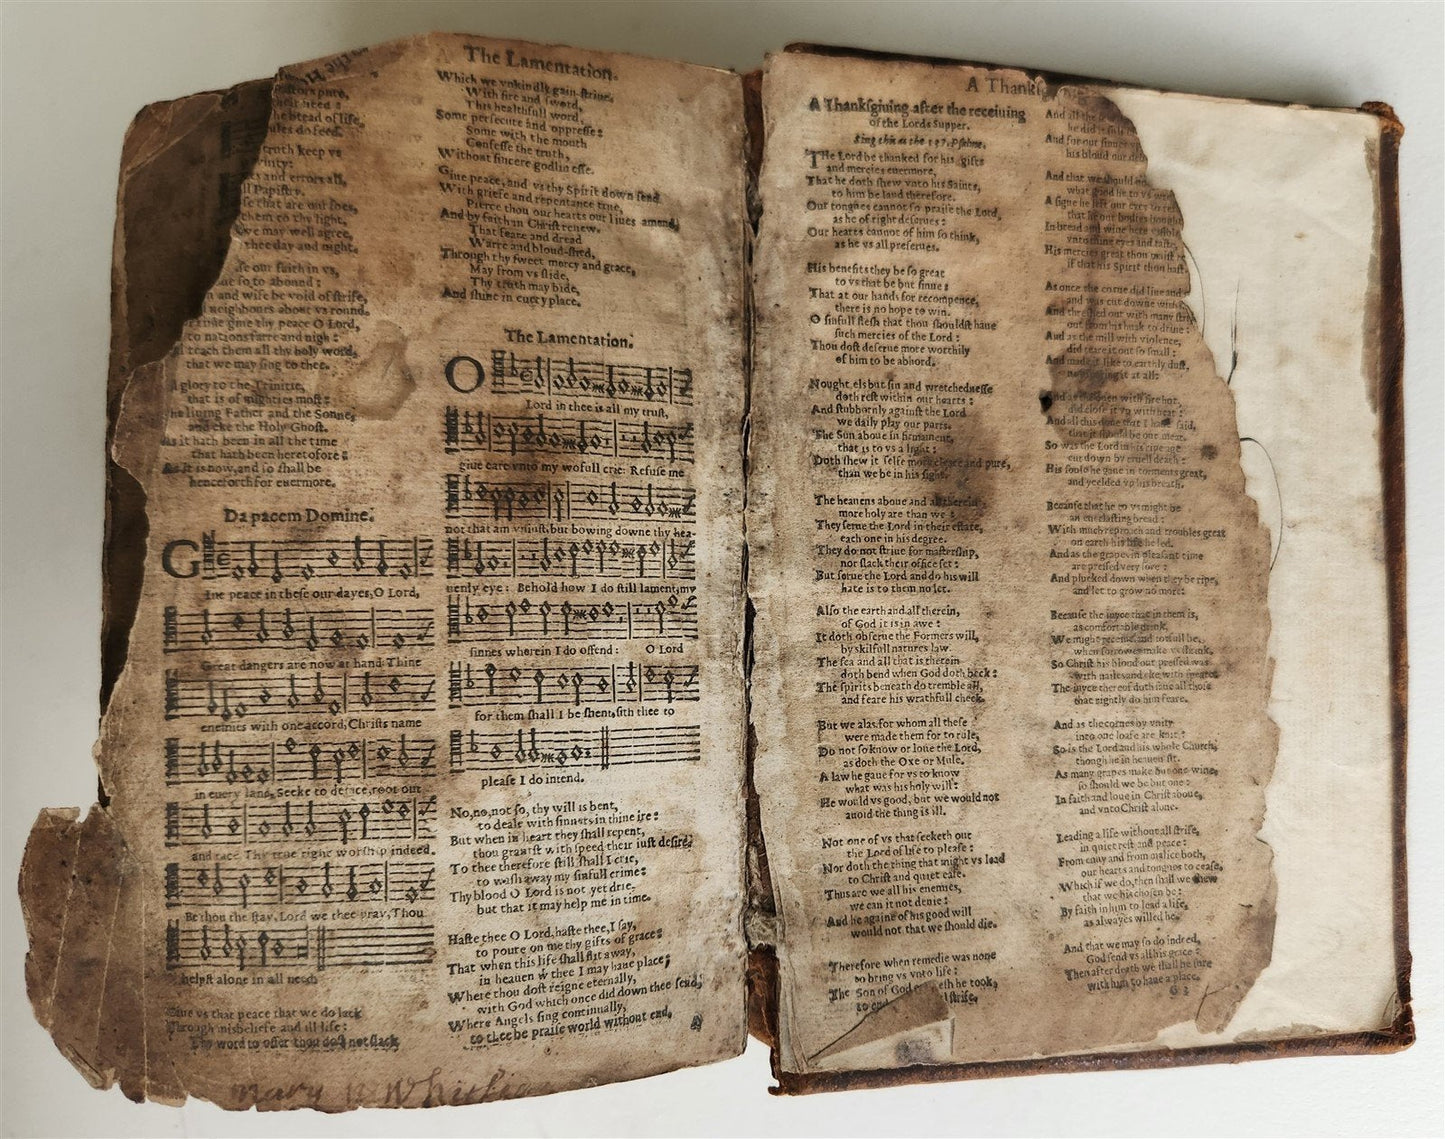 The Lamentation.
pure,
need:
he bread of life,
do feed.
truth keep vs
and errors all,
Papistry.
that are our foes,
them to thy light,
we may well agree,
thee day and night.
our faith in vs,
so to abound:
and wife be void of strife,
neighbours about vs round.
giue thy peace O Lord,
to nations farre and nigh:
teach them all thy holy word,
that we may sing to thee.
glory to the Trinitie,
that is of mighties most:
liuing Father and the Sonne,
and eke the Holy Ghost.
As it hath been in all the time
that hath been heretofore:
As it is now, and so shall be
henceforth for euermore.
Da pacem Domine.
Giue peace in these our dayes, O Lord,
Great dangers are now at hand Thine
enemies with one accord, Christs name
in euery land, Seeke to deface, root out
and race. Thy true right worship indeed.
Be thou the stay, Lord we thee pray, Thou
helpst alone in all need.
Giue vs that peace that we do lack
Through misbeliefe and ill life:
Thy word to offer thou dost not slack
Mary
Which we vnkindly gain-striue,
With fire and sword,
This healthfull word,
Some persecute and oppresse:
Some with the mouth
Confesse the truth,
Without sincere godlinesse.
Giue peace, and vs thy Spirit down send
With griefe and repentance true,
Pierce thou our hearts our liues amend,
And by faith in Christ renew.
That feare and dread
Warre and bloud-shed,
Through thy sweet mercy and grace,
May from vs slide,
Thy truth may bide,
And shine in euery place.
The Lamentation.
O Lord in thee is all my trust,
giue eare vnto my wofull crie: Refuse me
not that am vniust, but bowing downe thy hea-
uenly eye: Behold how I do still lament, my
sinnes wherein I do offend: O Lord
for them shall I be shent, sith thee to
please I do intend.
No, no, not so, thy will is bent,
to deale with sinners in thine ire:
But when in heart they shall repent,
thou grantst with speed their iust desire,
To thee therefore still shall I crie,
to wash away my sinfull crime:
Thy blood O Lord is not yet drie,
but that it may help me in time.
Haste thee O Lord, haste thee, I say,
to poure on me thy gifts of grace:
That when this life shall flit away,
in heauen with thee I may haue place,
Where thou dost reigne eternally,
with God which once did down thee send,
Where Angels sing continually,
to thee be praise world without end.
A Thanksgiuing
A Thanksgiuing after the receiuing
of the Lords Supper.
sing this as the 137. Psalme.
THe Lord be thanked for his gifts
and mercies euermore,
That he doth shew vnto his Saints,
to him be laud therefore.
Our tongues cannot so praise the Lord,
as he of right deserues:
Our hearts cannot of him so think,
as he vs all preserues.
His benefits they be so great
to vs that be but sinne:
That at our hands for recompence,
there is no hope to win.
O sinfull flesh that thou shouldst haue
such mercies of the Lord:
Thou dost deserue more worthily
of him to be abhord.
Nought els but sin and wretchednesse
doth rest within our hearts:
And stubbornly against the Lord
we daily play our parts.
The Sun aboue in firmament,
that is to vs a light:
Doth shew it selfe more cleare and pure,
than we be in his sight.
The heauens aboue and all therein
more holy are than we:
They serue the Lord in their estate,
each one in his degree.
They do not striue for mastership,
nor slack their office set:
But serue the Lord and do his will
hate is to them no let.
Also the earth and all therein,
of God it is in awe:
It doth obserue the Formers will,
by skilfull natures law.
The sea and all that is therein
doth bend when God doth beck:
The spirits beneath do tremble all,
and feare his wrathfull check.
But we alas, for whom all these
were made them for to rule,
Do not so know or loue the Lord,
as doth the Oxe or Mule.
A law he gaue for vs to know
what was his holy will:
He would vs good, but we would not
auoid the thing is ill.
Not one of vs that seeketh out
the Lord of life to please:
Nor doth the thing that might vs lead
to Christ and quiet ease.
Thus are we all his enemies,
we can it not denie:
And he againe of his good will
would not that we should die.
Therefore when remedie was none
to bring vs vnto life:
The Son of God flesh he took,
to end strife.
And all the
he did it full
And for our sinnes
his bloud
And that we should
what good he to vs
A signe he left our eyes to
that he our bodies bought
In bread and wine here visible
vnto thine eyes and taste,
His mercies great thou maist
if that his Spirit thou hast.
As once the corne did liue and
and was cut downe with
And threshed out with many
out from his husk to driue:
And as the mill with violence,
did teare it out so small:
And made it like to earthly dust,
not at all:
And as with fire hot,
did close it vp with heat:
And all this done that I haue said,
that it should be our meat.
So was the Lord in his ripe age
cut down by cruell death:
His soule he gaue in torments great,
and yeelded vp his breath.
Because that he to vs might be
an euerlasting bread:
With much reproch and troubles great
on earth his life he led.
And as the grapes in pleasant time
are pressed very sore:
And plucked down when they be ripe,
and let to grow no more:
Because the iuyce that in them is,
as comfortable drink,
We might receiue, and ioyfull be,
when sorrowes make vs shrink.
So Christ his bloud out pressed was
with nailes and eke with speare:
The iuyce thereof doth saue all those
that rightly do him feare.
And as the cornes by vnity
into one loafe are knit:
So is the Lord and his whole Church,
though he in heauen sit.
As many grapes make but one wine,
so should we be but one:
In faith and loue in Christ aboue,
and vnto Christ alone.
Leading a life without all strife,
in quiet rest and peace:
From enuy and from malice both,
our hearts and tongues to cease,
Which if we do, then shall we shew
that we his chosen be:
By faith in him to lead a life,
as alwayes willed he.
And that we may so do indeed,
God send vs all his grace:
Then after death we shall be sure
with him to haue a place.
G 3